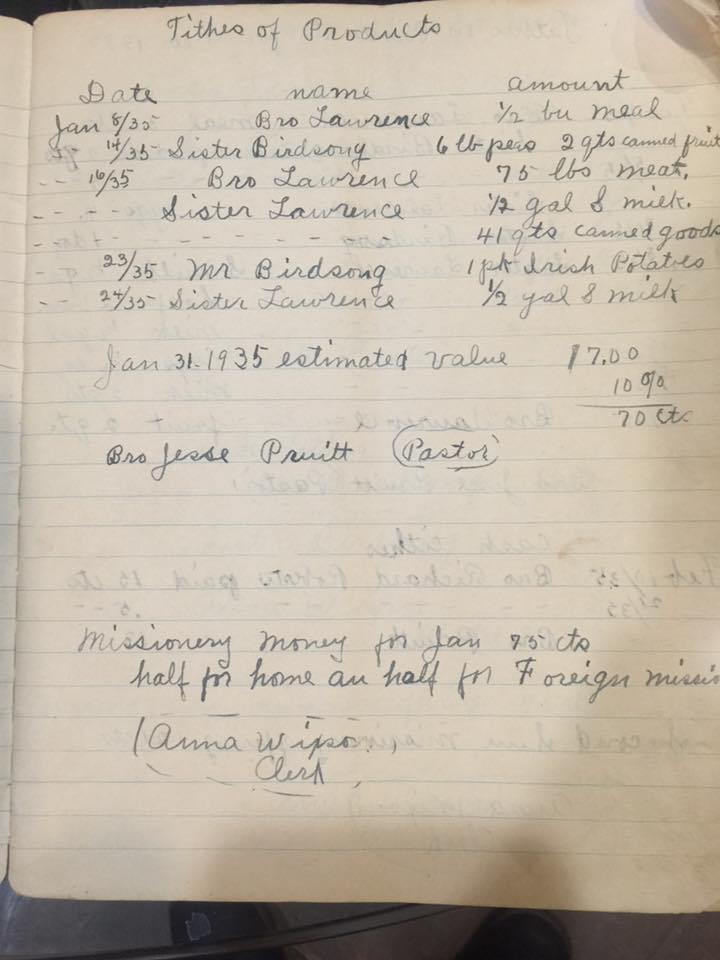 Tithes of Products
Date name amount
Jan 8/35 Bro Lawrence 1/2 bu meal
" 14/35 Sister Birdsong 6 lb peas 2 qts canned fruit
-- 16/35 Bro Lawrence 75 lbs meat.
- - - - Sister Lawrence 1/2 gal S milk.
- - - - - - - - - 41 qts canned goods
- 23/35 Mr Birdsong 1 pk Irish Potatoes
-- 24/35 Sister Lawrence 1/2 gal S milk
Jan 31-1935 estimated value 17.00
10 %
70 cts
Bro Jesse Pruitt (Pastor)
Missionery money for Jan 75 cts
half for home an half for Foreign missio
(Anna
Clerk